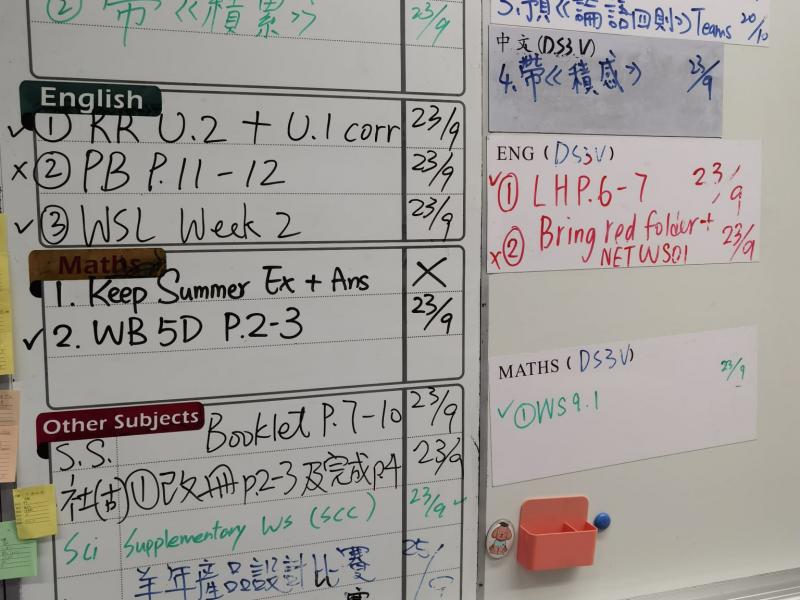 ② 帶《積累》 23/9
English
✓ ① KR U.2 + U.1 corr 23/9
x ② PB P.11-12 23/9
✓ ③ WSL Week 2 23/9
Maths
1. Keep Summer Ex + Ans X
✓ 2. WB 5D P.2-3 23/9
Other Subjects
S.S. Booklet P.7-10 23/9
社(古) ① 改冊 p.2-3 及完成 p.4 23/9
Sci Supplementary WS (SCC) 23/9 ✓
羊年產品設計比賽 25/
5.預《論語四則》Teams 20/10
中文(DS3V)
4.帶《積感》 23/9
ENG (DS3V)
✓ ① LHP.6-7 23/9
x ② Bring red folder + 23/9
NETWS01
MATHS (DS3V) 23/9
✓ ① WS9.1